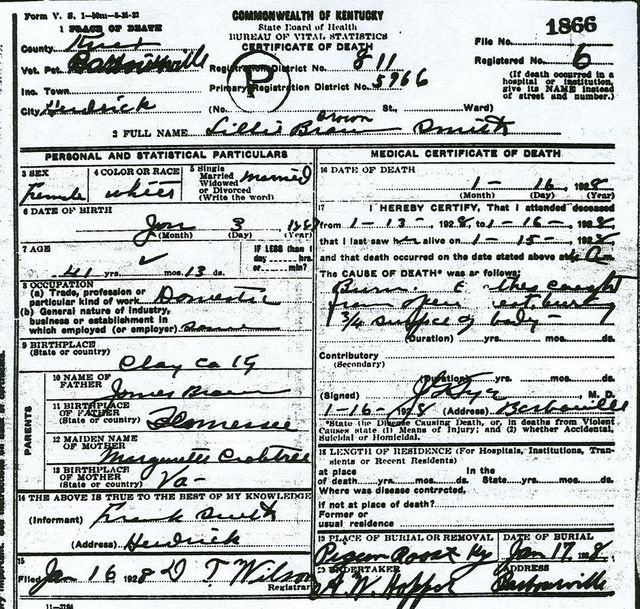 Form V. S. 1-50m-8-25-22
COMMONWEALTH OF KENTUCKY
State Board of Health
BUREAU OF VITAL STATISTICS
CERTIFICATE OF DEATH
1866
1 PLACE OF DEATH
County Knox
File No.
Vot. Pct. Barbourville
Registration District No. 811
Registered No. 6
Inc. Town
Primary Registration District No. 5966
P
(If death occurred in a hospital or institution, give its NAME instead of street and number.)
City Hendrick (No. St., Ward)
Brown
2 FULL NAME Lillie Brown Smith
PERSONAL AND STATISTICAL PARTICULARS
3 SEX Female
4 COLOR OR RACE white
5 Single Married Widowed or Divorced (Write the word) Married
6 DATE OF BIRTH
Jan 3, 1887
(Month) (Day) (Year)
7 AGE
IF LESS than 1 day ... hrs. or ... min?
41 yrs. mos. 13 ds.
8 OCCUPATION
(a) Trade, profession or particular kind of work Domestic
(b) General nature of industry, business or establishment in which employed (or employer) same
9 BIRTHPLACE
(State or country) Clay Co Ky
PARENTS
10 NAME OF FATHER James Brown
11 BIRTHPLACE OF FATHER
(State or country) Tennessee
12 MAIDEN NAME OF MOTHER Margurette Crabtree
13 BIRTHPLACE OF MOTHER
(State or country) Va-
14 THE ABOVE IS TRUE TO THE BEST OF MY KNOWLEDGE
(Informant) Frank Smith
(Address) Hendrick
15
Filed Jan 16 1928 D T Wilson
Registrar
11-2194
MEDICAL CERTIFICATE OF DEATH
16 DATE OF DEATH
1- 16, 1928
(Month) (Day) (Year)
17 I HEREBY CERTIFY, That I attended deceased
from 1-13-, 1928, to 1-16-, 1928
that I last saw alive on 1-15-, 1928
and that death occurred on the date stated above at
The CAUSE OF DEATH* was as follows:
Burn. caught
from open
3/4 surface of body -
(Duration) yrs. mos. ds.
Contributory
(Secondary)
(Duration) yrs. mos. ds.
(Signed) M. D.
1-16-1928 (Address) Barbourville
*State the Disease Causing Death, or, in deaths from Violent Causes state (1) Means of Injury; and (2) whether Accidental, Suicidal or Homicidal.
18 LENGTH OF RESIDENCE (For Hospitals, Institutions, Transients or Recent Residents)
at place of death yrs. mos. ds. In the State yrs. mos. ds.
Where was disease contracted,
if not at place of death?
Former or
usual residence
19 PLACE OF BURIAL OR REMOVAL Pigeon Roost Ky
DATE OF BURIAL Jan 17, 1928
20 UNDERTAKER A. W. Hopper
ADDRESS Barbourville